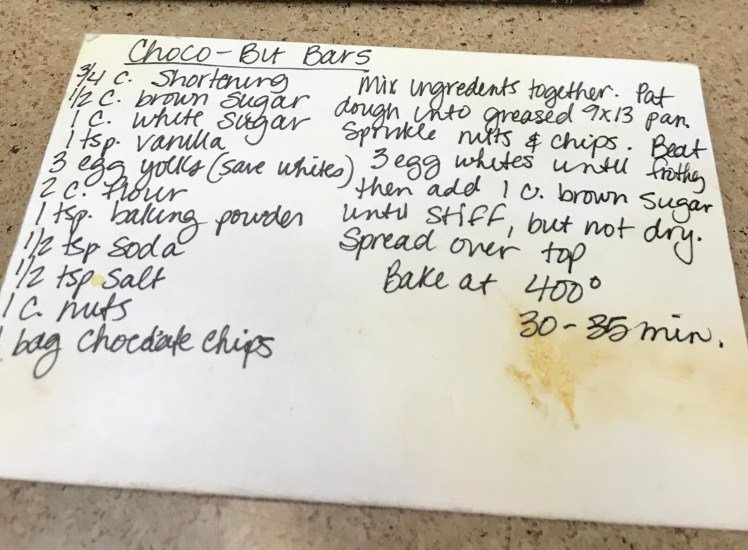 Choco-Bit Bars
3/4 c. Shortening
1/2 c. brown sugar
1 c. white sugar
1 tsp. vanilla
3 egg yolks (save whites)
2 c. flour
1 tsp. baking powder
1/2 tsp soda
1/2 tsp salt
1 c. nuts
1 bag chocolate chips
Mix ingredients together. Pat
dough into greased 9x13 pan.
Sprinkle nuts & chips. Beat
3 egg whites until frothy
then add 1 c. brown sugar
until stiff, but not dry.
Spread over top
Bake at 400°
30-35 min.